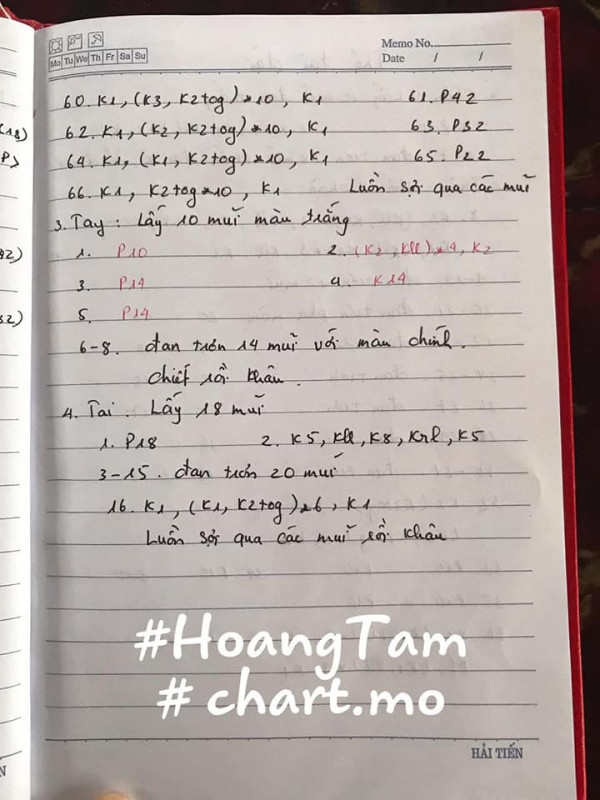 Memo No.
Mo Tu We Th Fr Sa Su
Date / /
60. K1, (K3, K2tog)*10, K1 61. P42
62. K1, (K2, K2tog)*10, K1 63. P32
64. K1, (K1, K2tog)*10, K1 65. P22
66. K1, K2tog*10, K1 Luồn sợi qua các mũi
3. Tay: Lấy 10 mũi màu trắng
1. P10 2. (K2, Kll)*4, K2
3. P14 4. K14
5. P14
6-8. đan trơn 14 mũi với màu chính.
chiết rồi khâu.
4. Tai. Lấy 18 mũi
1. P18 2. K5, Kll, K8, Krl, K5
3-15. đan trơn 20 mũi
16. K1, (K1, K2tog)*6, K1
Luồn sợi qua các mũi rồi khâu
#HoangTam
# chart.mo
HẢI TIẾN